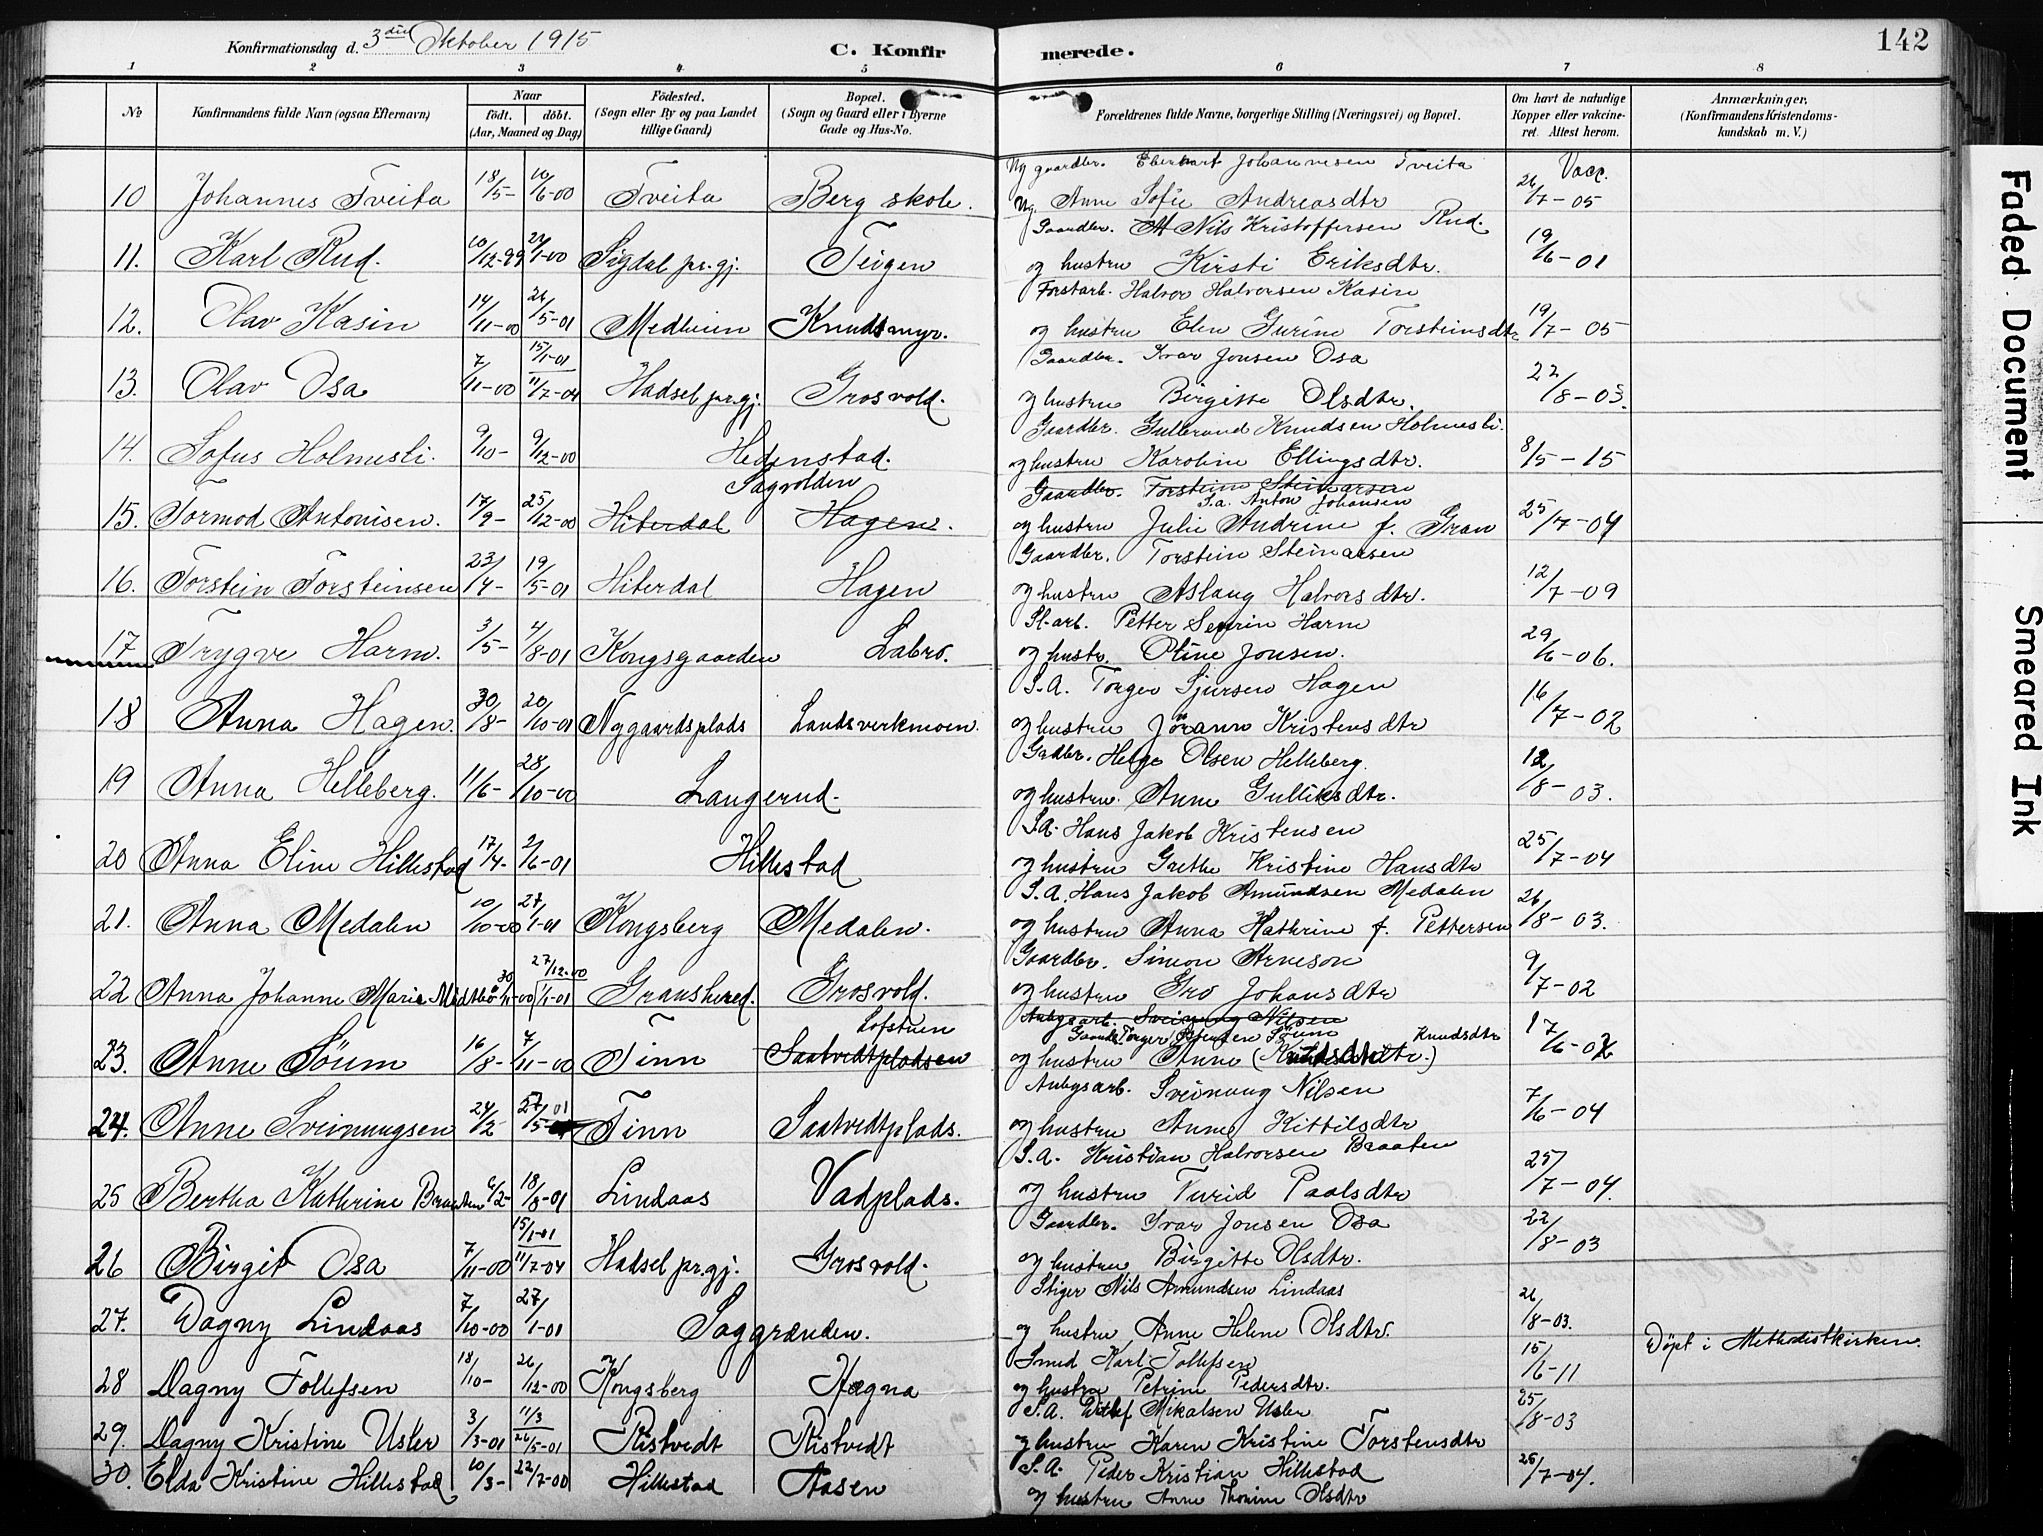 Konfirmationsdag d. 3die Oktober 1915
C. Konfir merede.
142
1 2 3 4 5 6 7 8
No
Konfirmandens fulde Navn (ogsaa Efternavn)
Naar
født. døbt.
(Aar, Maaned og Dag)
Fødested.
(Sogn eller By og paa Landet
tillige Gaard)
Bopæl.
(Sogn og Gaard eller i Byerne
Gade og Hus-No.
Forældrenes fulde Navne, borgerlige Stilling (Næringsvei) og Bopæl.
Om havt de naturlige
Kopper eller vakcine-
ret. Attest herom.
Anmærkninger.
(Konfirmandens Kristendoms-
kundskab m. V.)
Ug gaardbr. Eberhart Johannesen Tveita Vacc.
10 Johannes Tveita 18/5- 10/6-00 Tveita Berg skole. Ug. Anne Sofie Andreasdtr 26/7-05
Gaardbr. Nils Kristoffersen Rud.
11. Karl Rud. 10/12-99 21/1-00 Sigdal pr.gj. Teigen og hustru Kirsti Eriksdtr. 19/6-01
Forstarb. Halvor Halvorsen Kasin
12. Olav Kasin 14/11-00 26/5-01 Medheim Knudsmyr. og hustru Elen Gurine Torsteinsdtr 19/7-05
15/1-01 Gaardbr. Ivar Jonsen Osa
13. Olav Osa 7/11-00 11/7-04 Hadsel pr.gj. Grosvold. og hustru Birgitte Olsdtr. 22/8-03.
Gaardbr. Gulbrand Knudsen Holmesli.
14. Sofus Holmesli. 9/10- 9/12-00 Hedenstad. og hustru Karoline Ellingsdtr. 8/5-15
Sagvolden Gaardbr. Torstein Steinarsen
S.a. Anton Johansen
15. Tormod Antonisen. 17/9- 25/12-00 Hiterdal Hagen. og hustru Julie Andrine f. Gran 25/7-04
Gaardbr. Torstein Steinarsen
16. Torstein Torsteinsen 23/4- 19/5-01 Hiterdal Hagen og hustru Aslaug Halvorsdtr. 12/7-09
Sl-arb. Petter Severin Harm
17 Trygve Harm. 3/5- 4/8-01 Kongsgaarden Labro. og hustr. Oline Jonsen. 29/6-06.
S.A. Torger Sjursen Hagen
18 Anna Hagen. 30/8- 20/10-01 Nygaardsplads Landsverkmoen. og hustru Jörann Kristensdtr 16/7-02
Gadbr. Helge Olsen Helleberg.
19 Anna Helleberg. 11/6- 28/10-00 Langerud. og hustru Anne Gulliksdtr. 12/8-03.
S.A. Hans Jakob Kristensen
20 Anna Eline Hillestad 17/4- 2/6-01 Hillestad og hustru Grethe Kristine Hansdtr 25/7-04
S.A. Hans Jakob Amundsen Medalen
21. Anna Medalen 10/10-00 27/1-01 Kongsberg Medalen. og hustru Anna Kathrine f. Pettersen 26/8-03.
27/12-00 Gaardbr. Simon Arneson
22 Anna Johanne Marie Midtbö 30/11-00 /1-01 Gransherad. Grosvold. og hustru Gro Johansdtr 9/7-02
Lofstuen Anlgsarb. Sveinung Nilsen
Gaardbr. Torger Söum Knudsdtr
23. Anne Söum 16/8- 7/11-00 Tinn Saatvedtpladsen og hustru Anne 17/6-02
Anlgsarb. Sveinung Nilsen
24. Anne Sveinungsen 24/2- 27/5-01 Tinn Saatvedtplads. og hustru Anne Kittilsdtr 7/6-04
S.A. Kristian Halvorsen Braaten
25 Bertha Kathrine Braaten 6/2- 18/8-01 Lindaas Vadplads. og hustru Turid Paalsdtr 25/7-04.
15/1-01 Gaardbr. Ivar Jonsen Osa
26 Birgit Osa 7/11-00 11/7-04 Hadsel pr.gj. Grosvold. og hustru Birgitte Olsdtr. 22/8-03
Stiger Nils Amundsen Lindaas
27. Dagny Lindaas 7/10-00 27/1-01 Saggrenden. og hustru Anne Helene Olsdtr. 26/8-03.
Smed Karl Tollefsen Døpt i Methodistkirken.
28 Dagny Tollefsen 18/10- 26/12-00 Kongsberg Hægna og hustru Petrine Pedersdtr. 15/6-11
11/3 S.A. Detlef Mikalsen Usler
29. Dagny Kristine Usler 3/3-01 26/5-01 Ristvedt Ristvedt og hustru Karen Kristine Torstensdtr 25/8-03
S.A. Peder Kristian Hillestad
30. Elda Kristine Hillestad 10/3- 22/7-00 Hillestad Aasen og hustru Anne Thorine Olsdtr 25/7-04.
Faded Document
Smeared Ink